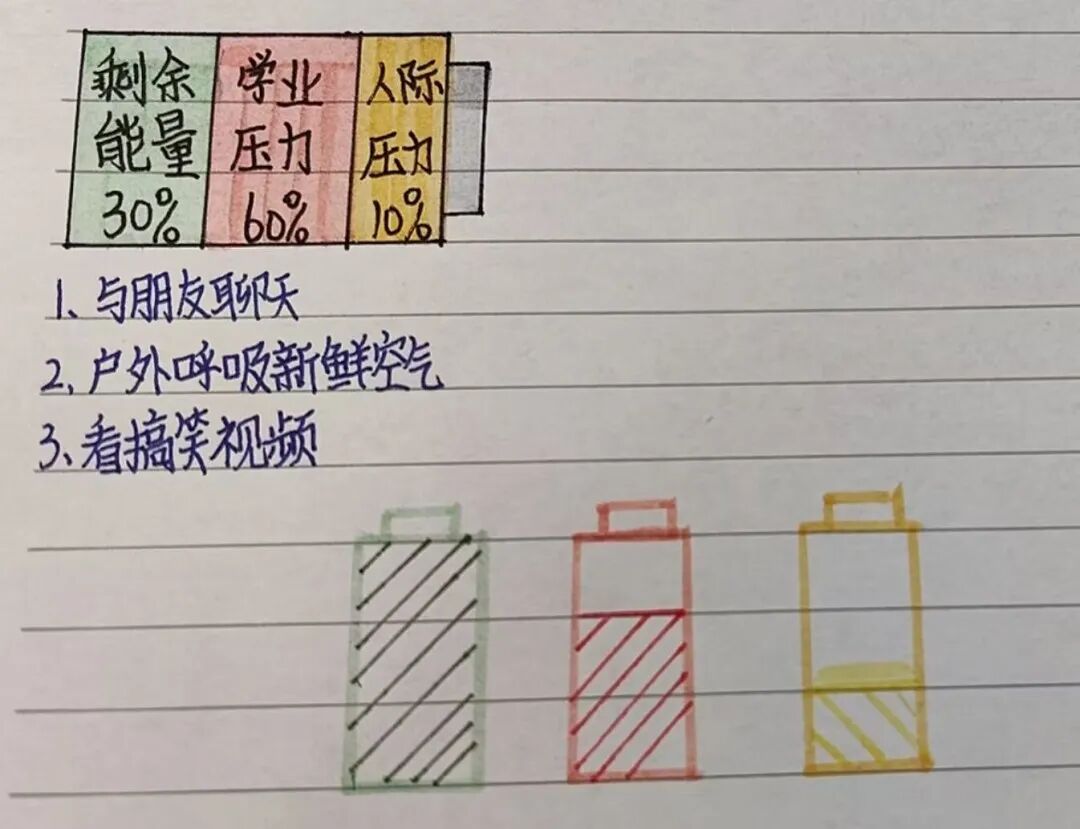 剩余 学业 人际
能量 压力 压力
30% 60% 10%
1、与朋友聊天
2、户外呼吸新鲜空气
3、看搞笑视频